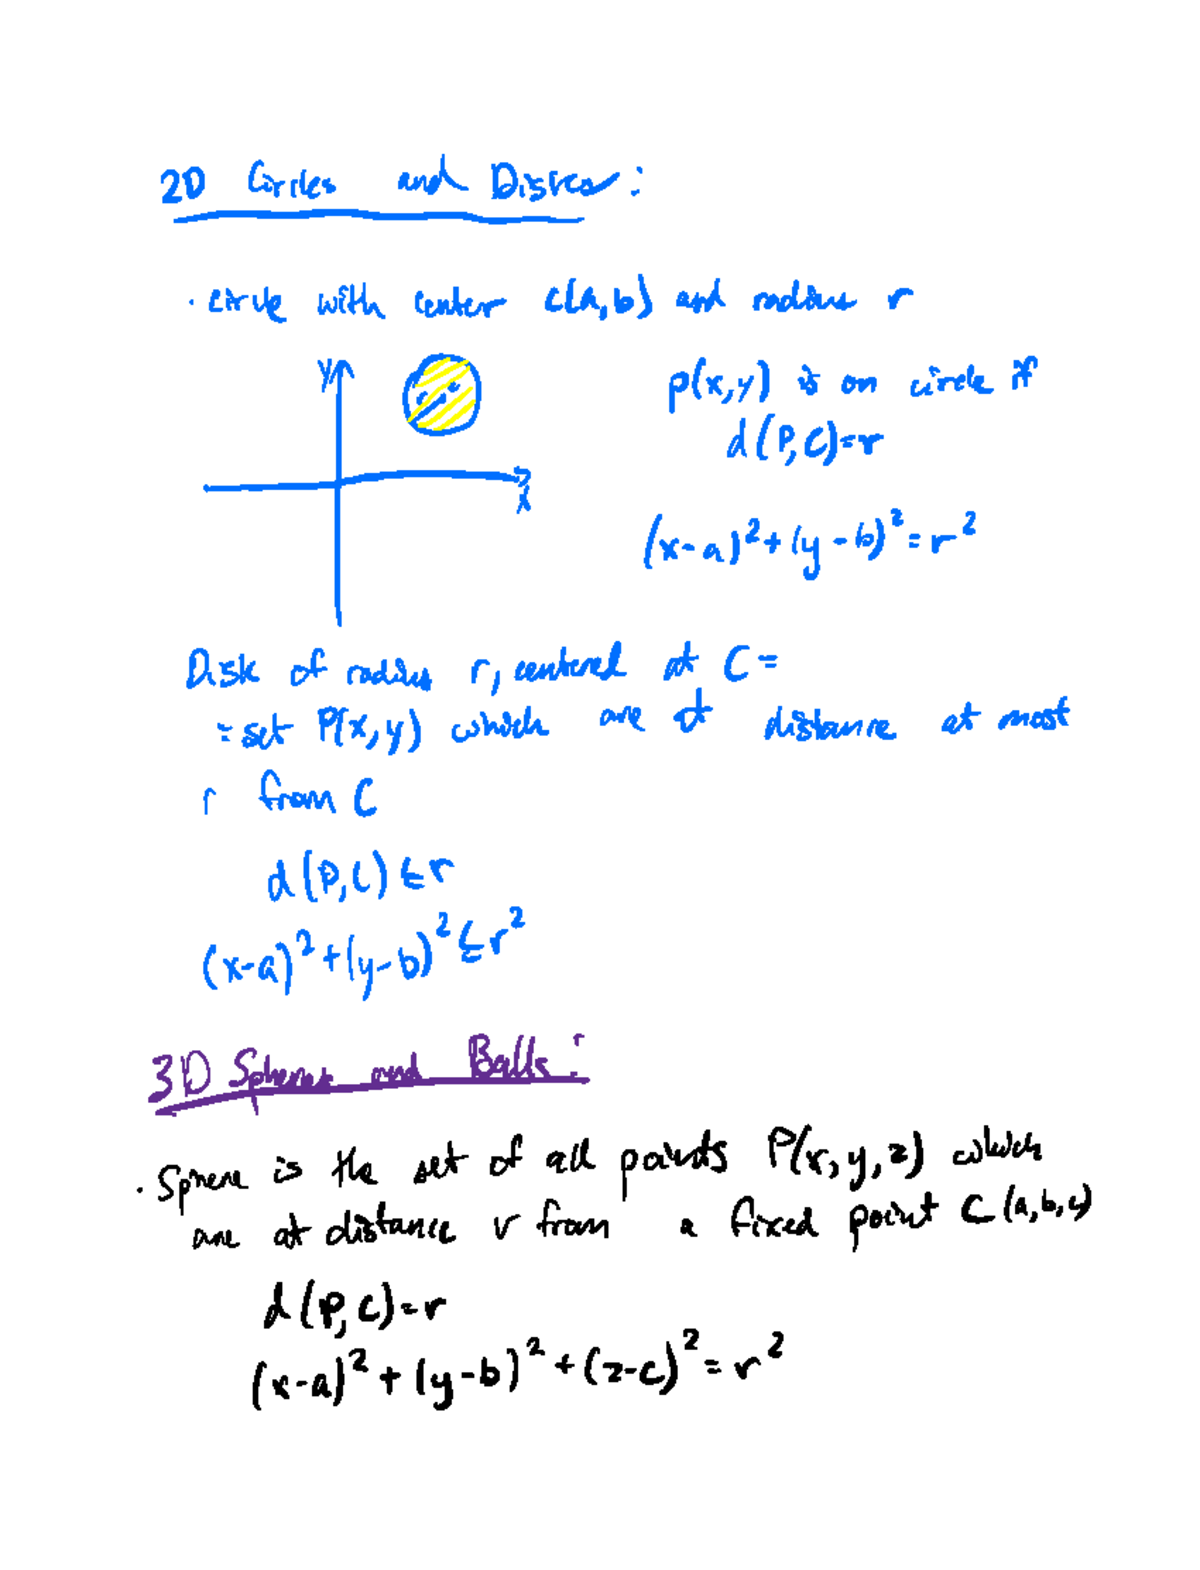 2D Circles and Disks:
· circle with center C(a,b) and radius r
y
P(x,y) is on circle if
d(P,C)=r
x
(x-a)²+(y-b)²=r²
Disk of radius r, centered at C=
=set P(x,y) which are at distance at most
r from C
d(P,C)≤r
(x-a)²+(y-b)²≤r²
3D Spheres and Balls:
· Sphere is the set of all points P(x,y,z) which
are at distance r from a fixed point C(a,b,c)
d(P,C)=r
(x-a)²+(y-b)²+(z-c)²=r²